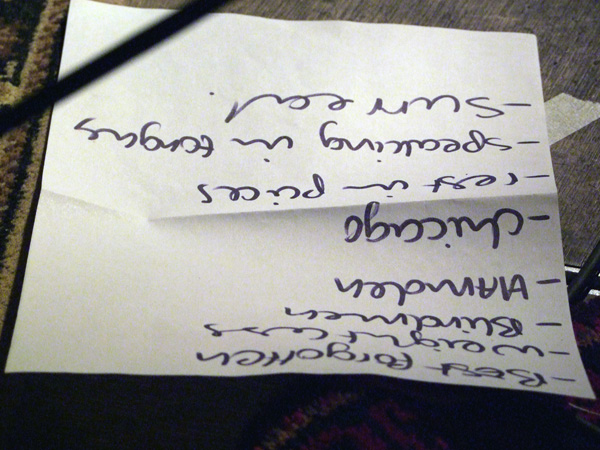 -Best forgotten
-weightless
-Blindmen
-HAmden
-chicago
-rest in pices
-speaking in tongus